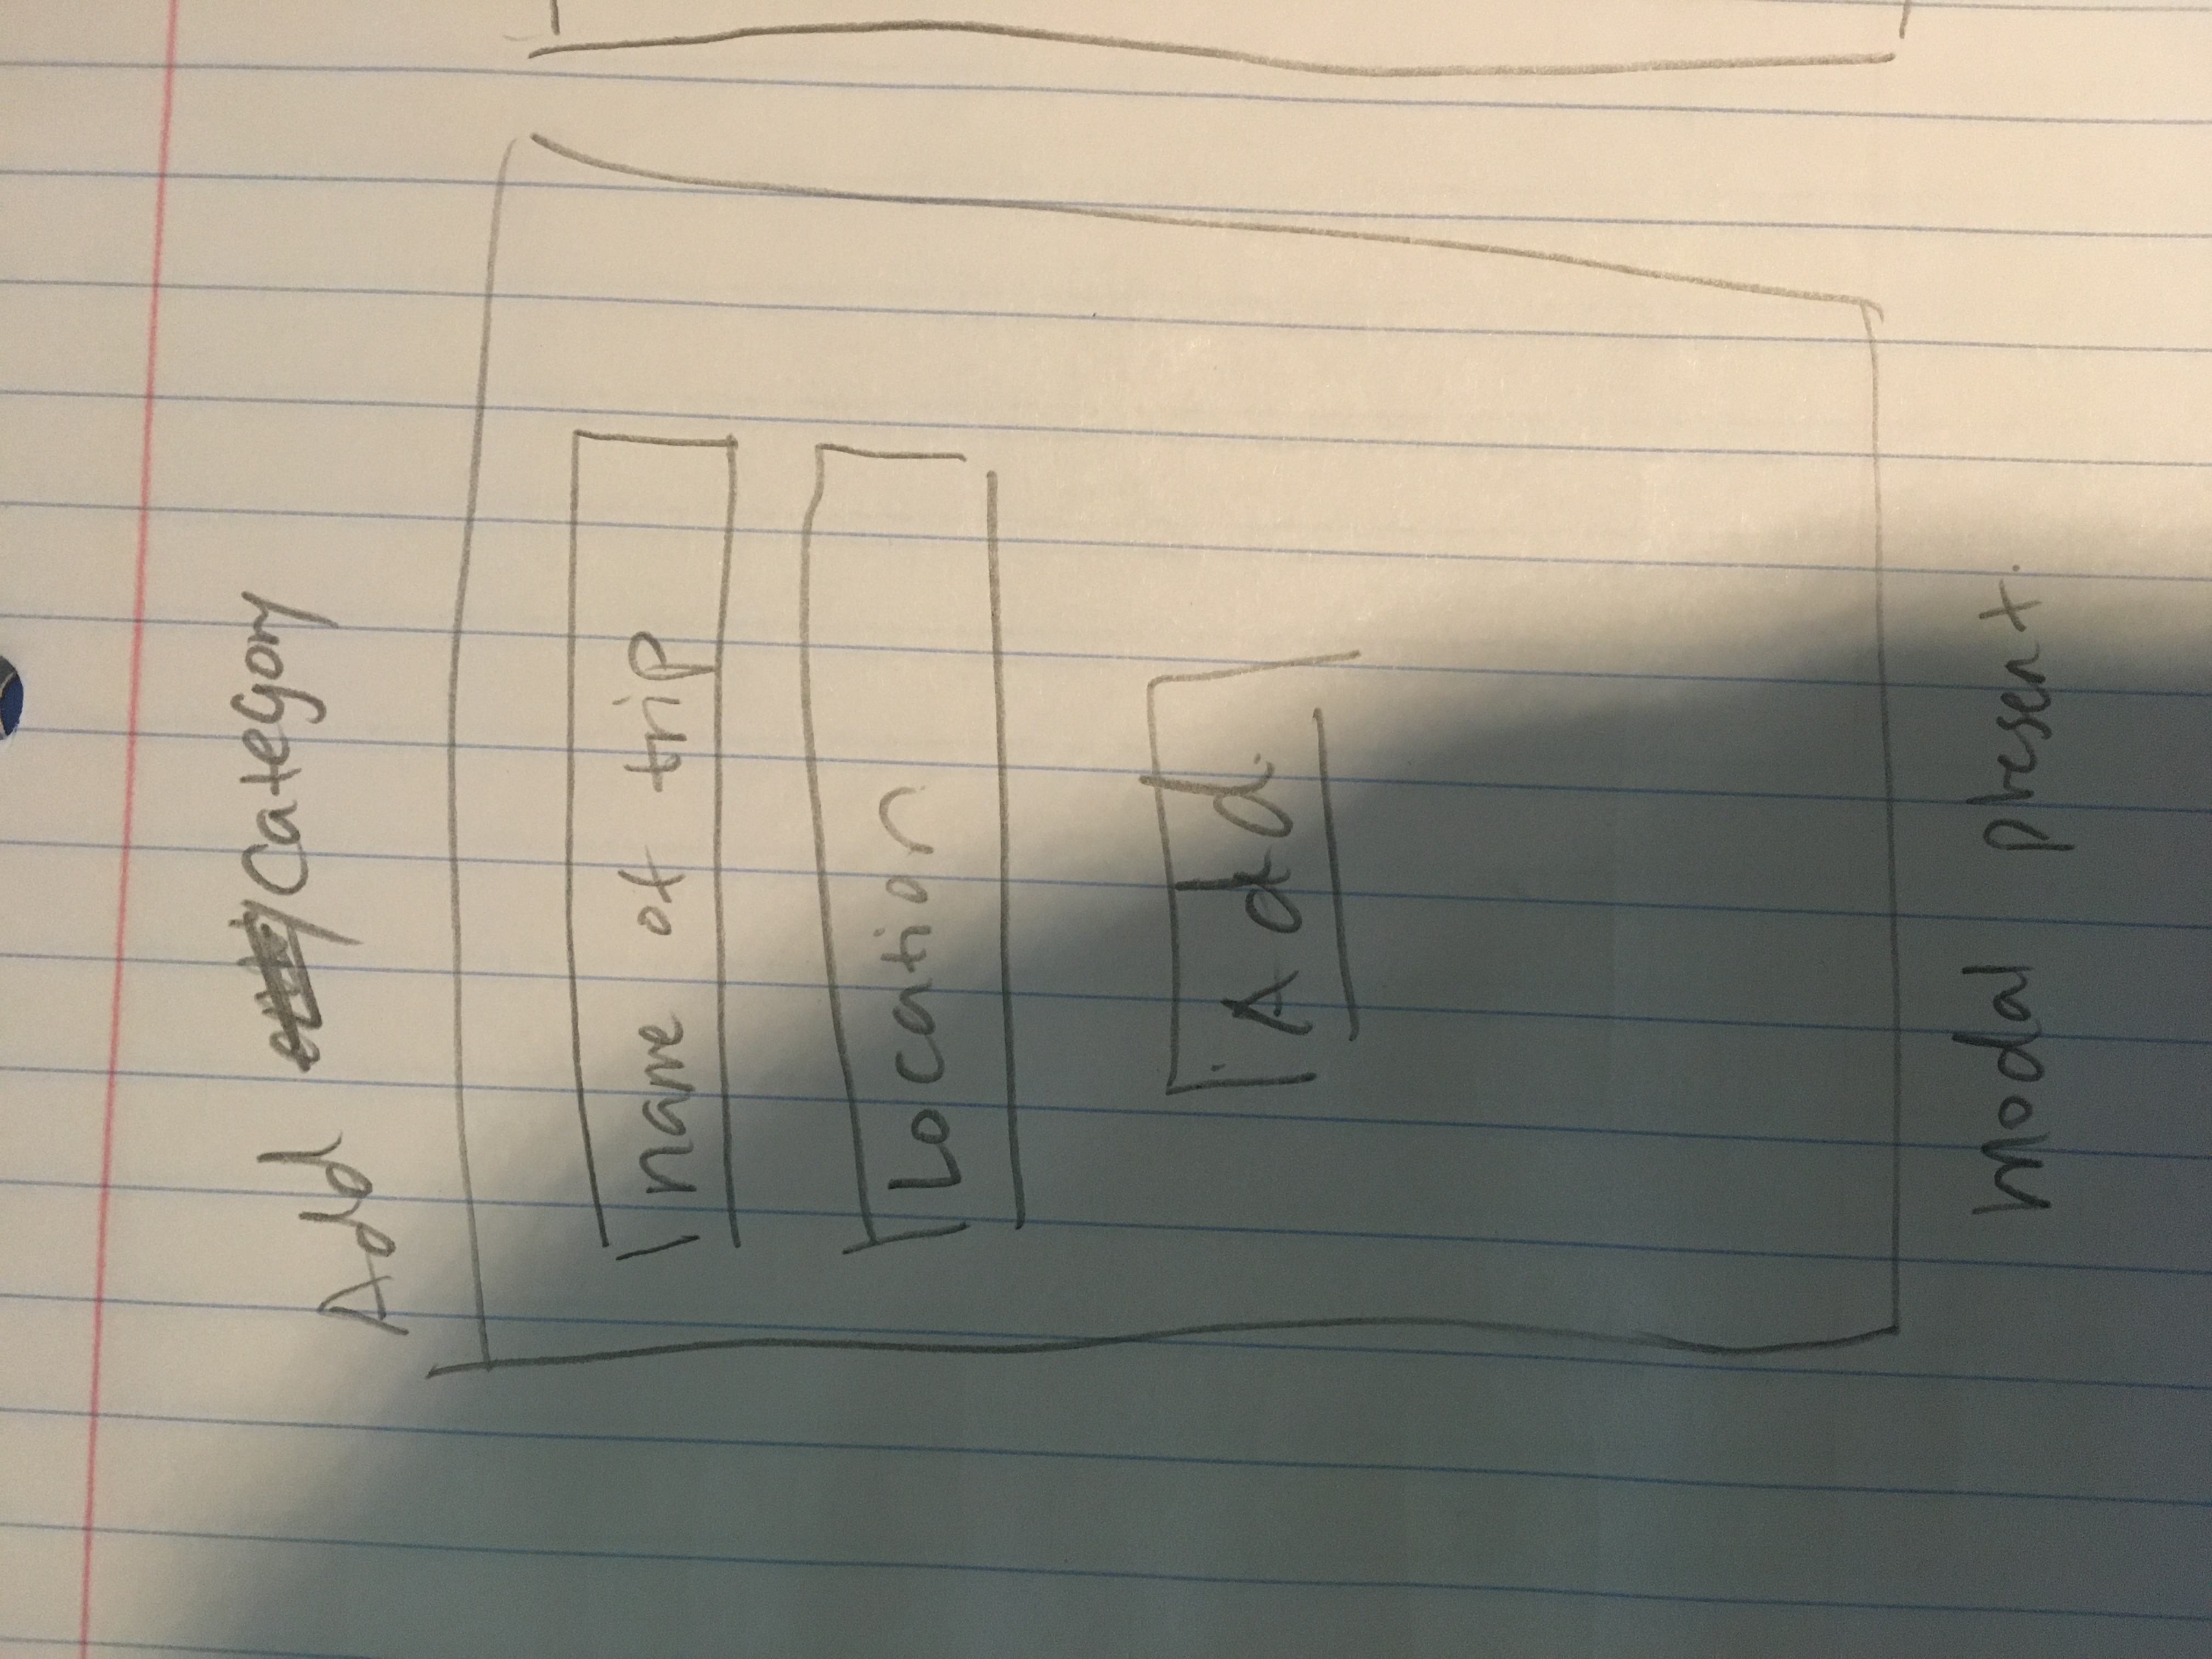 Add Category
name of trip
Location
Add
modal present.